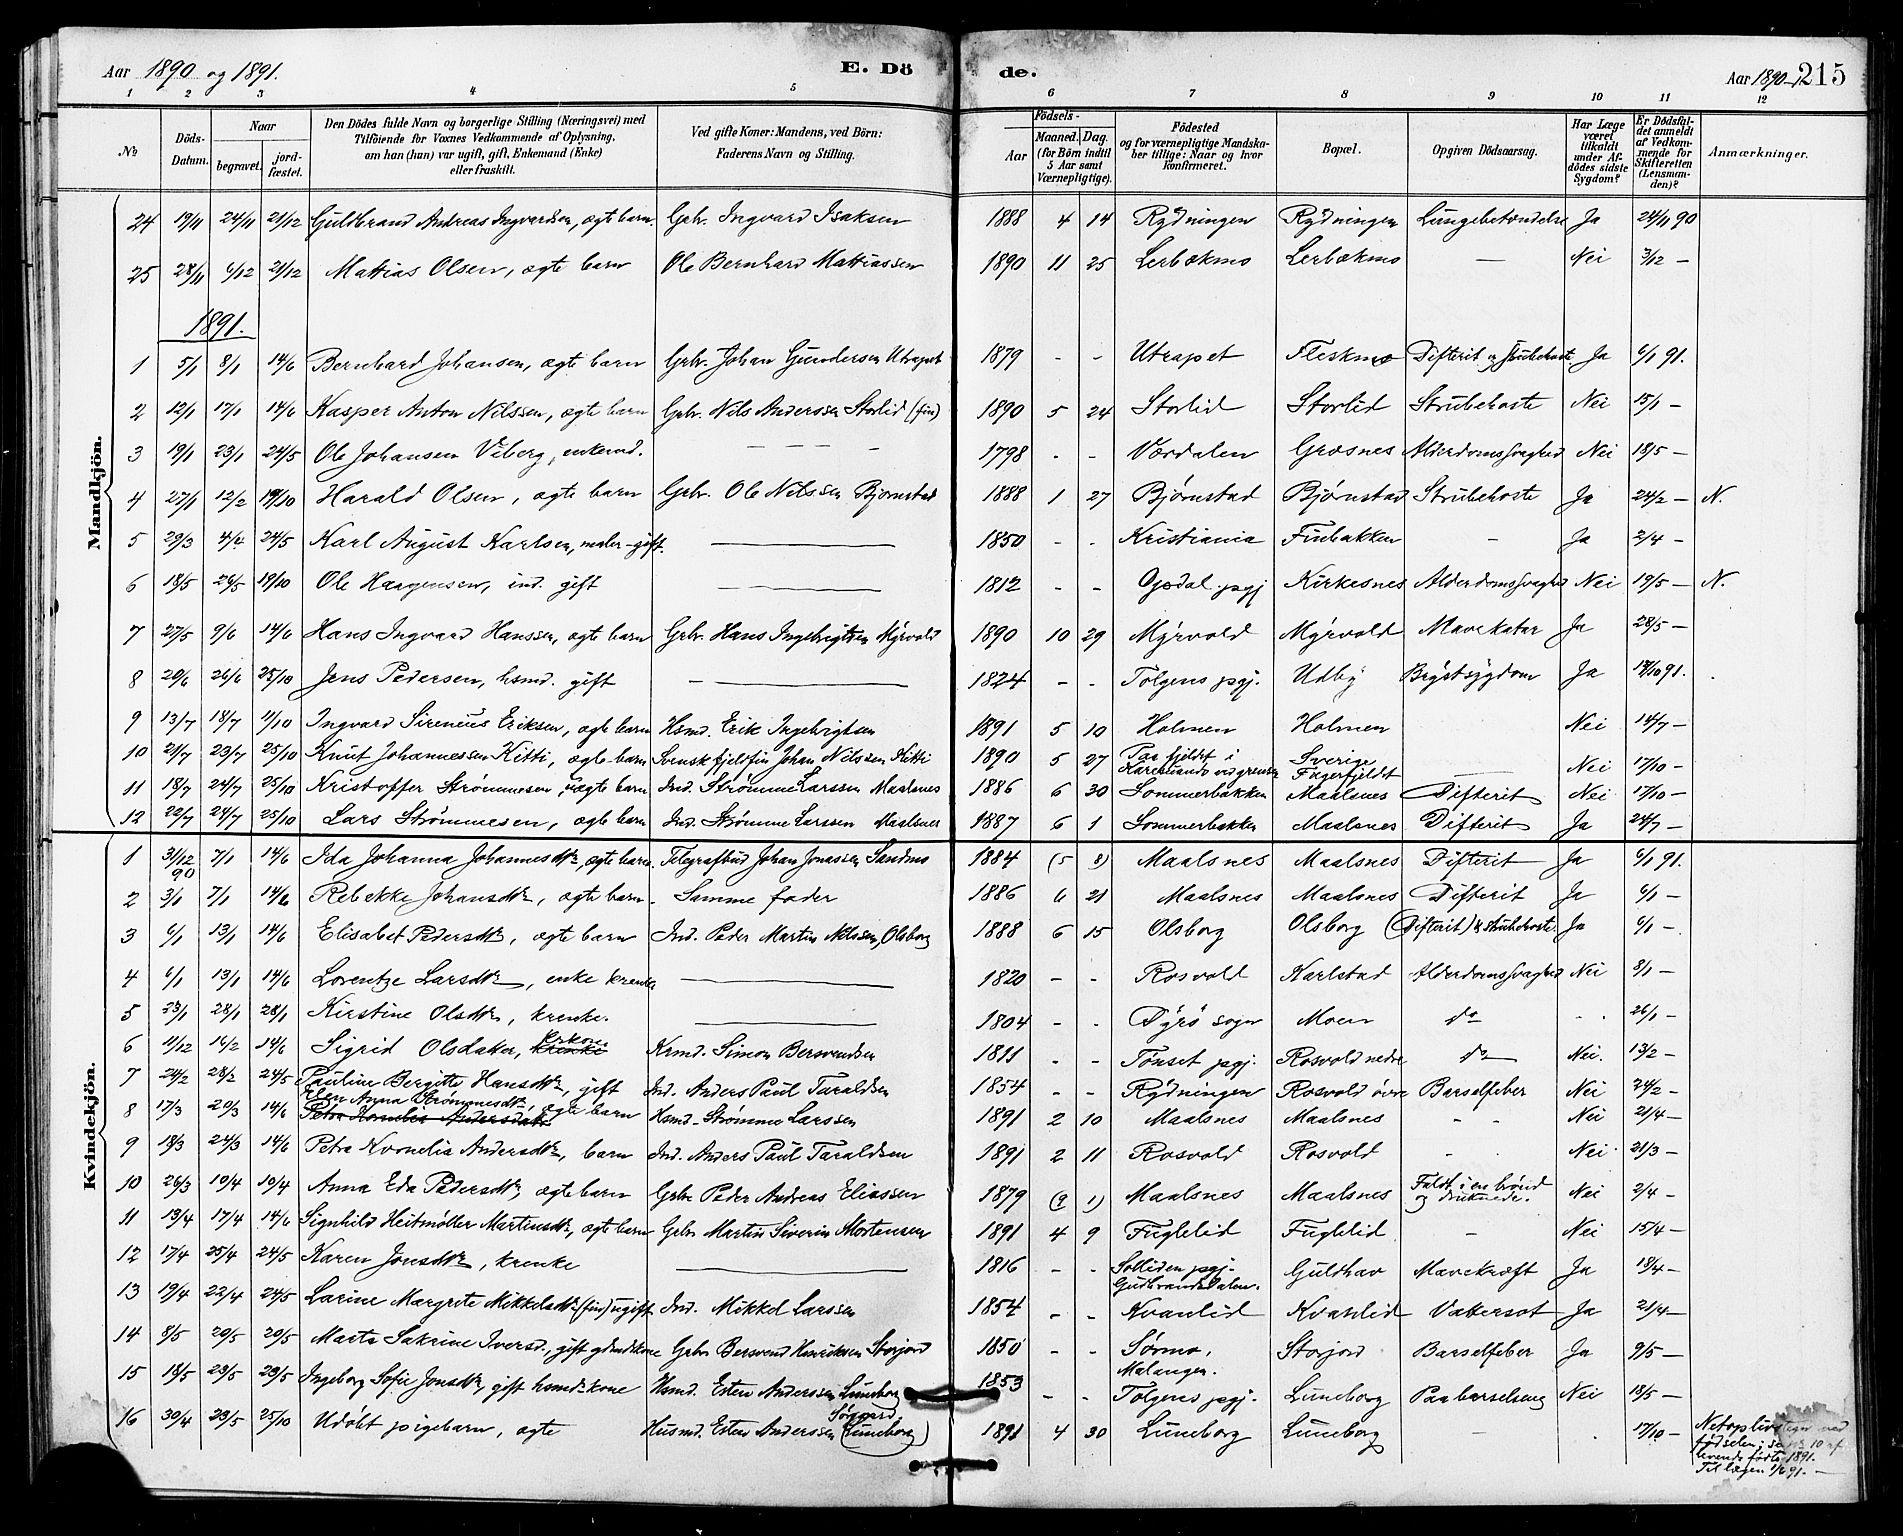 Aar 1890 og 1891.
E. Döde.
Aar 1890-
215
1 2 3 4 5 6 7 8 9 10 11 12
№
Döds-Datum.
Naar
begravet.
jord-fæstet.
Den Dödes fulde Navn og borgerlige Stilling (Næringsvei) med
Tilföiende for Voxnes Vedkommende af Oplysning,
om han (hun) var ugift, gift, Enkemand (Enke)
eller fraskilt.
Ved gifte Koner: Mandens, ved Börn:
Faderens Navn og Stilling.
Födsels-
Aar
Maaned. Dag.
(for Börn indtil
5 Aar samt
Værnepligtige).
Födested
og for værnepligtige Mandska-
ber tillige: Naar og hvor
konfirmeret.
Bopæl.
Opgiven Dödsaarsag.
Har Læge
været
tilkaldt
under Af-
dödes sidste
Sygdom?
Er Dödsfal-
det anmeldt
af Vedkom-
mende for
Skifteretten
(Lensman-
den)?
Anmærkninger.
Mandkjön.
24 19/11 24/11 21/12 Guldbrand Andreas Ingvardsen, ægte barn. Grbr. Ingvard Isaksen 1888 4 14 Rydningen Rydningen Lungebetændelse Ja 24/11 90
25 28/11 6/12 21/12 Mattias Olsen, ægte barn Ole Bernhard Mattiassen 1890 11 25 Lerbækmo Lerbækmo — Nei 3/12 —
1891.
1 5/1 8/1 14/6 Bernhard Johansen, ægte barn Grbr. Johan Gundersen Utrapet 1879 - - Utrapet Fleskmo Difterit og Strubehoste Ja 6/1 91.
2 12/1 17/1 14/6 Kasper Anton Nilssen, ægte barn Grbr. Nils Anderssen Storlid (fin) 1890 5 24 Storlid Storlid Strubehoste Nei 15/1 —
3 19/1 23/1 24/5 Ole Johansen Viberg, enkemd. — — — 1798 - - Værdalen Græsnes Alderdomssvaghed Nei 18/5 —
4 27/1 12/2 19/10 Harald Olsen, ægte barn Grbr. Ole Nilssen Bjørnstad 1888 1 27 Bjørnstad Bjørnstad Strubehoste Ja 24/2 — N.
5 29/3 4/4 24/5 Karl August Karlsen, maler - gift. — 1850 - - Kristiania Finbakken - Ja 2/4 —
6 18/5 26/5 19/10 Ole Haagensen, ind. gift — 1812 - - Opdal pgj Kirkesnes Alderdomssvaghed Nei 19/5 — N.
7 27/5 9/6 14/6 Hans Ingvard Hanssen, ægte barn Grbr. Hans Ingebrigtsen Myrvold 1890 10 29 Myrvold Myrvold Mavekatar Ja 28/5 —
8 20/6 26/6 25/10 Jens Pedersen, hsmd. gift — 1824 - - Tolgens pgj. Udby Brystsygdom Ja 19/10 91.
9 13/7 18/7 11/10 Ingvard Sirenius Eriksen, ægte barn Hsmd. Erik Ingebrigtsen 1891 5 10 Holmen Holmen Nei 14/7 —
10 21/7 23/7 25/10 Knut Johannessen Kitti, ægte barn Svensk fjeldfin Johan Nilssen Kitti 1890 5 27 Paa fjeldet i Karesuando ved grensen Sverige Fagerfjeldt — Nei 17/10 —
11 18/7 24/7 25/10 Kristoffer Strømmesen, uægte barn Ind. Strømme Larssen Maalsnes 1886 6 30 Sommerbakken Maalsnes Difterit Nei 17/10 —
12 22/7 24/7 25/10 Lars Strømmesen, ægte barn Ind. Strømme Larssen Maalsnes 1887 6 1 Sommerbakken Maalsnes Difterit Ja 24/7 —
Kvindekjön.
1 31/12 90 7/1 14/6 Ida Johanna Johannesdtr, ægte barn Telegrafbud Johan Jonassen Sandmo 1884 (5 8) Maalsnes Maalsnes Difterit Ja 6/1 91.
2 3/1 7/1 14/6 Rebekke Johansdtr, ægte barn. Samme fader 1886 6 21 Maalsnes Maalsnes Difterit Ja 6/1 —
3 6/1 13/1 14/6 Elisabet Pedersdtr, ægte barn Ind. Peder Martin Nilssen, Olsborg 1888 6 15 Olsborg Olsborg (Difterit) & strubehoste. Ja 6/1 —
4 6/1 13/1 14/6 Lorentze Larsdtr, enke krenke — 1820 - - Rosvold Karlstad Alderdomssvaghed Nei 8/1 —
5 23/1 28/1 28/1 Kirstine Olsdtr, krenke. — 1804 - - Tyrø sogn Moen do - - 26/1 —
6 11/12 16/2 14/6 Sigrid Olsdatter, krenke Krmd. Simon Bersvendsen 1811 - - Tønset pgj. Rosvold nedre do Nei. 13/2 —
7 24/2 28/2 24/5 Pauline Bergitte Hansdtr, gift Ind. Anders Paul Taraldsen 1854 - - Rydningen Rosvold övre Barselfeber Nei 24/2 —
8 17/3 20/3 14/6 Elen Anna Strømmesdtr, ægte barn Petra Kornelia Andersdatr Hsmd. Strømme Larssen 1891 2 10 Maalsnes Maalsnes - - Nei 21/4 —
9 18/3 24/3 14/6 Petra Kornelia Andersdtr, barn Ind. Anders Paul Taraldsen 1891 2 11 Rosvold Rosvold - - Nei 21/3 —
10 26/3 10/4 19/4 Anna Eda Pedersdtr, ægte barn Grbr. Peder Andreas Eliassen 1879 (9 1) Maalsnes Maalsnes Faldt i en brønd og druknede. Nei 2/4 —
11 13/4 17/4 14/6 Signhild Heitmøller Martinsdtr, ægte barn Grbr. Martin Siverin Mortensen 1891 4 9 Fuglelid Fuglelid - Nei 15/4 —
12 17/4 25/4 24/5 Karen Jonsdtr, krenke — 1816 - - Solliden pgj. Gudbrandsdalen. Guldhav Mavekræft Ja 18/4 —
13 19/4 22/4 24/5 Larine Margrete Mikkelsdtr (fin) ugift Ind. Mikkel Larssen 1854 - - Kvanlid Kvanlid Vattersot Ja 21/4 —
14 8/5 20/5 20/5 Marta Sakrine Iversd., gift grdmdskone Grbr. Bersvend Henriksen Storjord 1850 - - Sørmo, Malangen. Storjord Barselfeber Ja 9/5 —
15 18/5 23/5 23/5 Ingeborg Sofie Jonsdtr, gift hsmds kone Hsmd. Esten Anderssen Luneborg 1853 - - Tolgens pgj. Luneborg Paa barselseng Nei 18/5 —
16 30/4 23/5 25/10 Udøbt pigebarn, ægte Husmd. Esten Anderssen (Luneborg) 1891 4 30 Luneborg Luneborg - - 17/10 — ved fødselen; 10 af levende fødte 1891. Til lægen 1/6 91. —